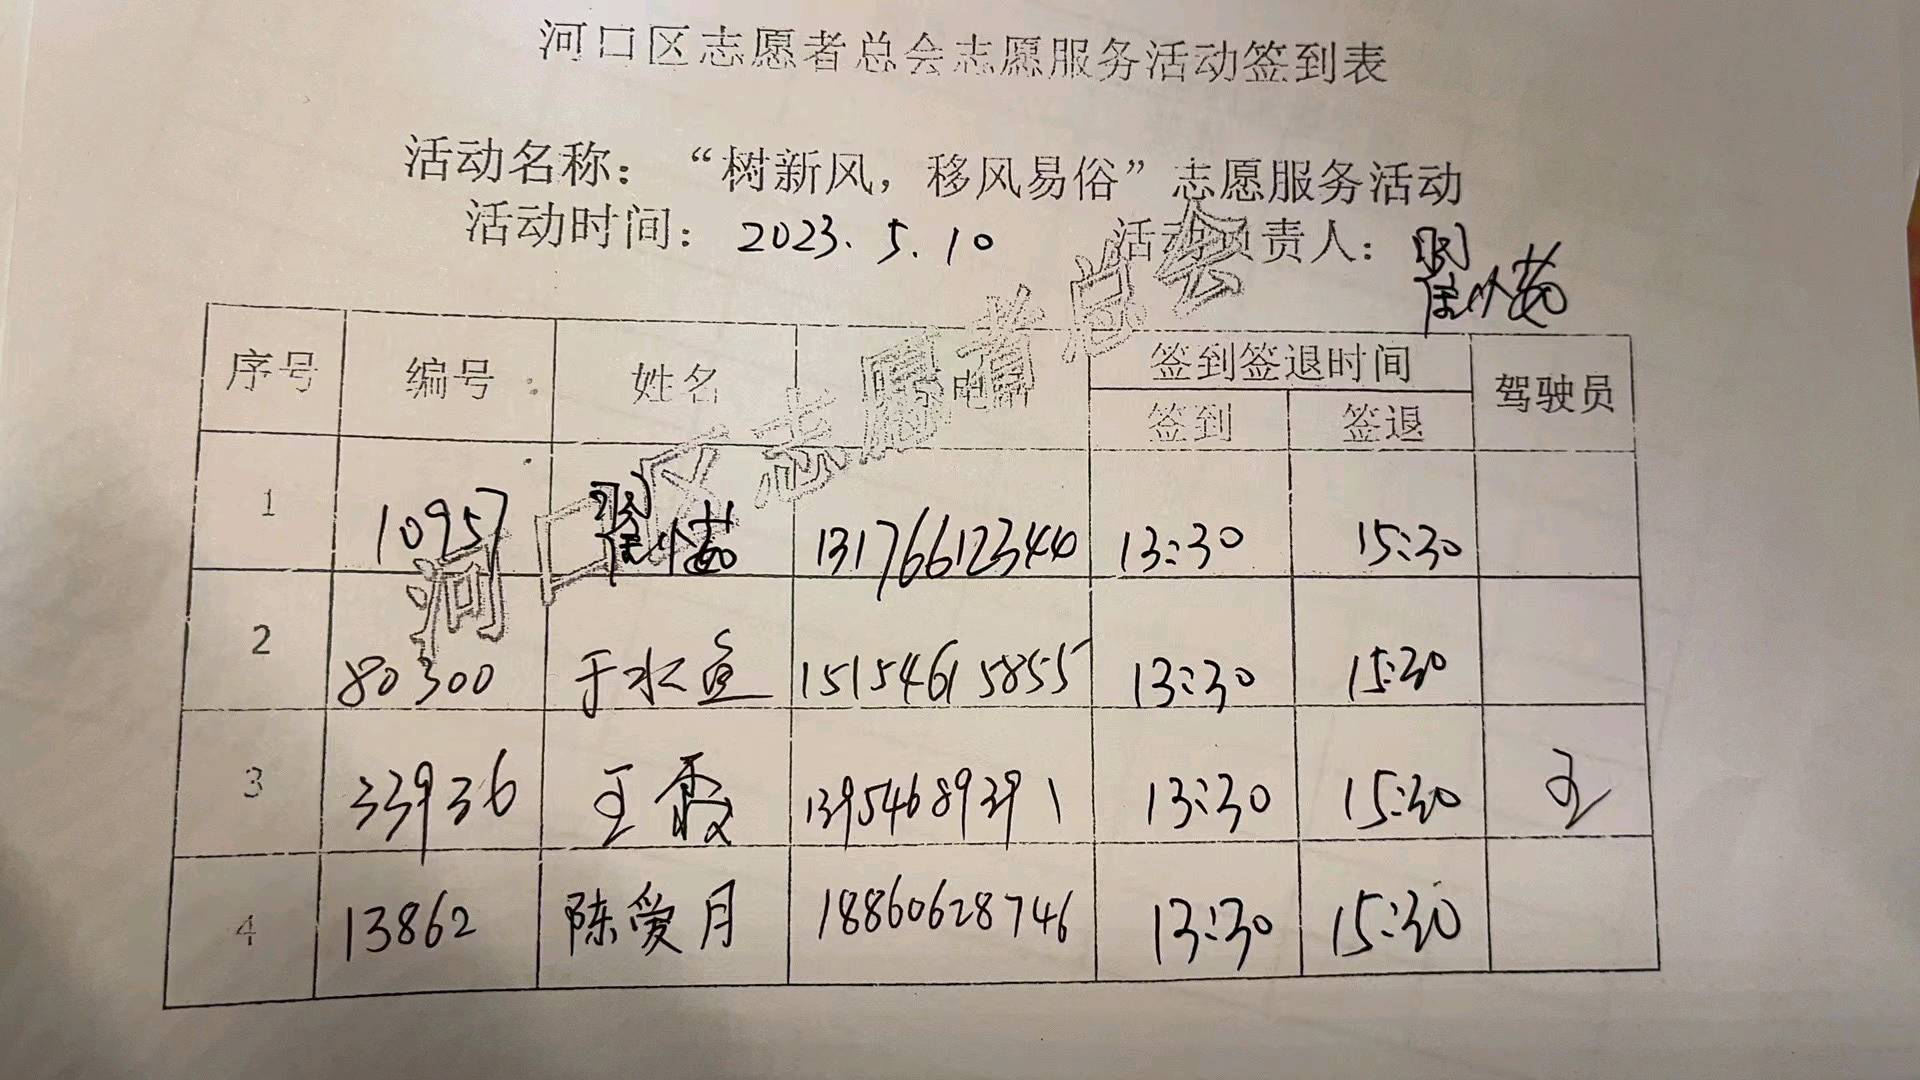 河口区志愿者总会志愿服务活动签到表
活动名称：“树新风，移风易俗”志愿服务活动
活动时间：2023.5.10 活动负责人：翟小茹
序号 编号 姓名 电话 签到签退时间 驾驶员
签到 签退
1 10957 翟小茹 13176612344 13:30 15:30
2 80300 于水 15154615855 13:30 15:30
3 33936 王霞 13954689391 13:30 15:30 王
4 13862 陈爱月 18860628746 13:30 15:30
河口区志愿者总会